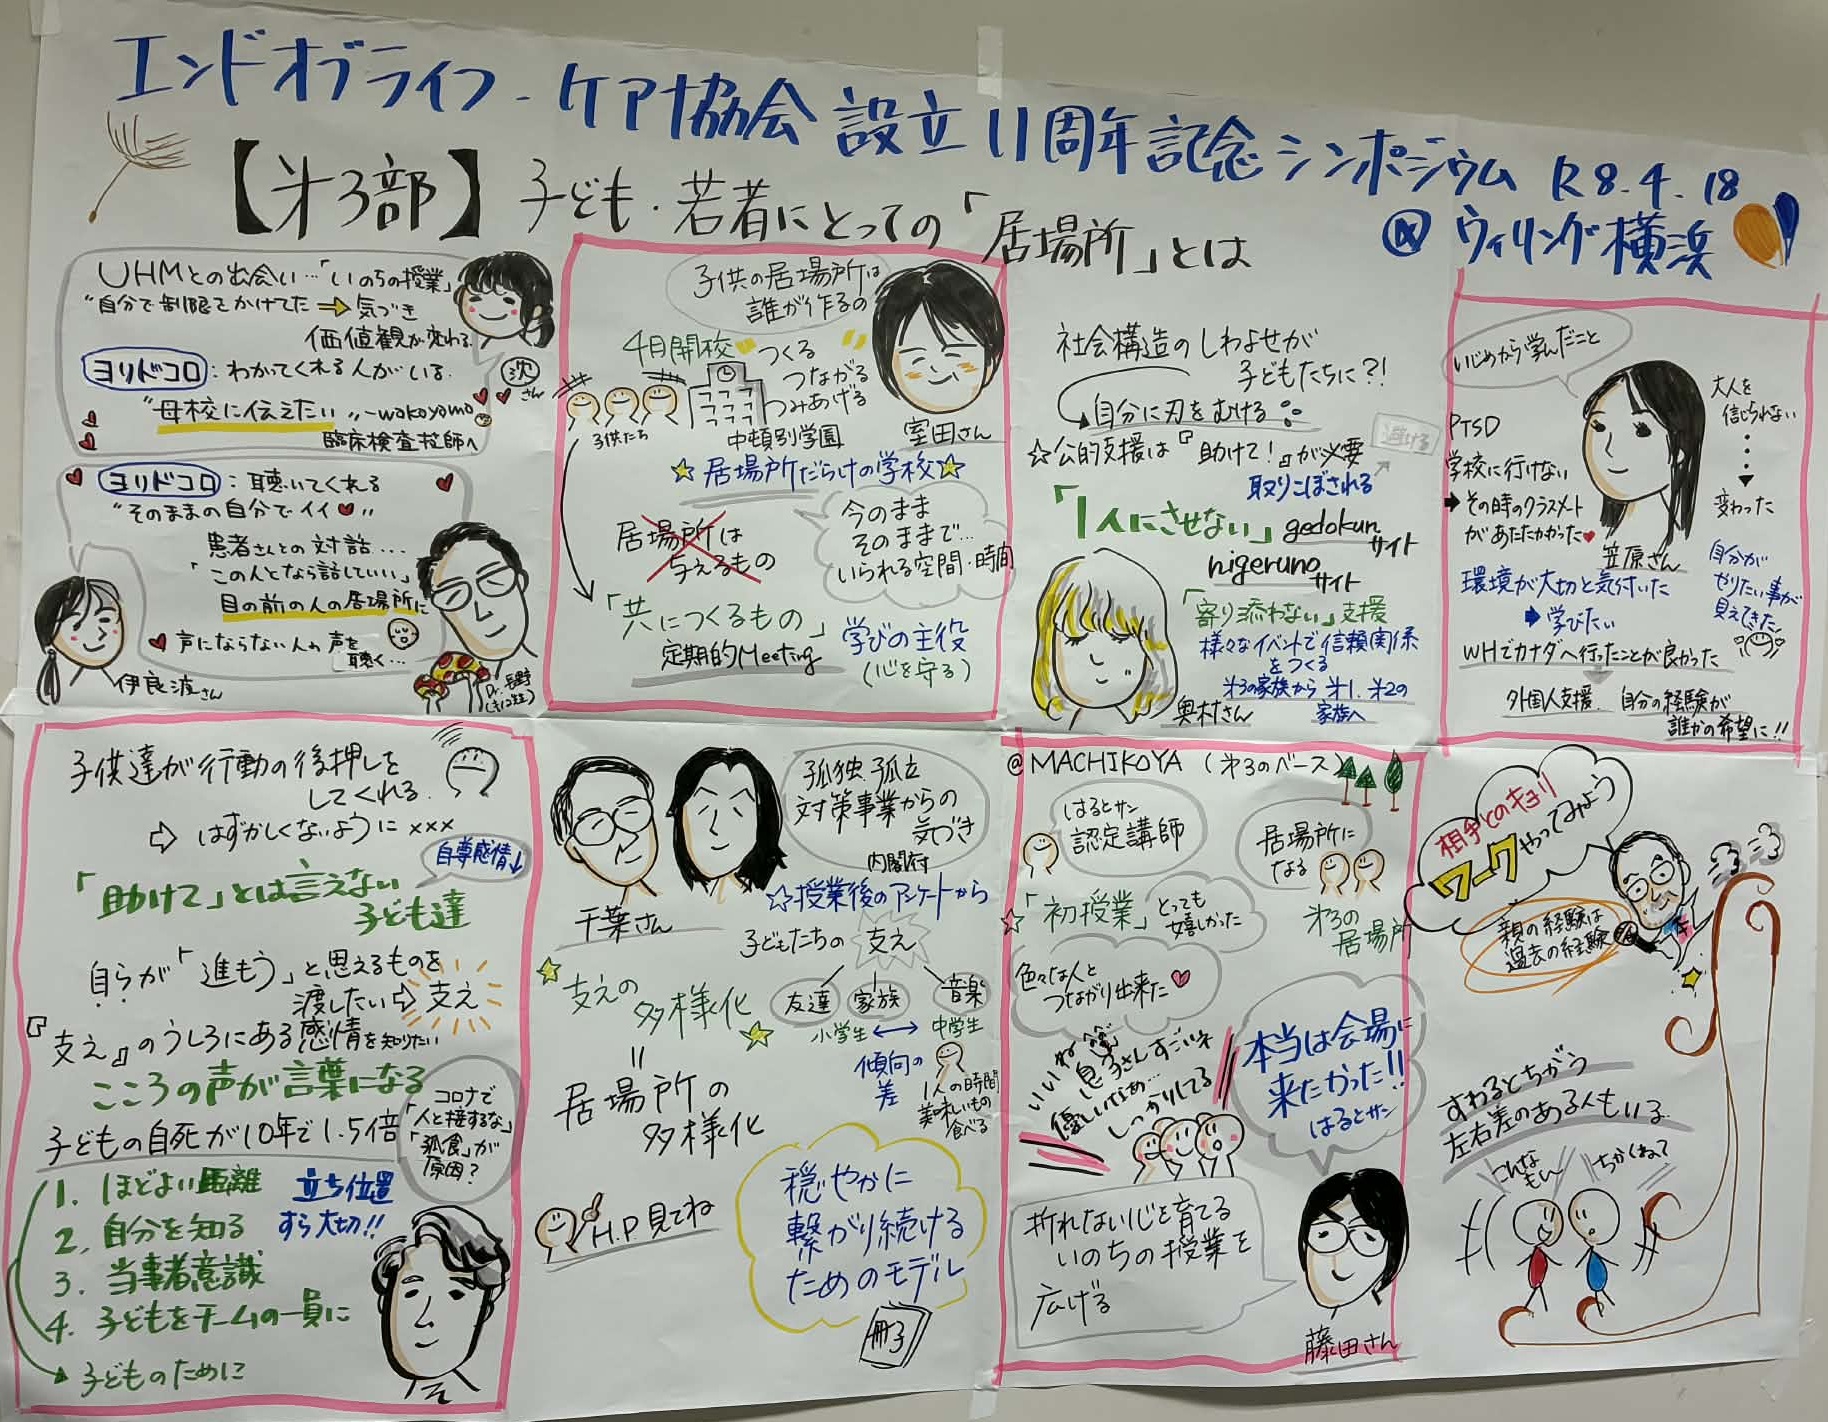 エンドオブライフ・ケア協会 設立11周年記念シンポジウム R8.4.18
@ウィリング横浜
【第3部】子ども・若者にとっての「居場所」とは
UHMとの出会い…「いのちの授業」
"自分で制限をかけてた ➡ 気づき
価値観が変わる
ヨリドコロ:わかってくれる人がいる。
次さん
"母校に伝えたい"
臨床検査技師へ
ヨリドコロ:聴いてくれる
"そのままの自分でイイ♥"
患者さんとの対話...
「この人となら話していい」
目の前の人の居場所に
♥ 声にならない人の声を
聴く…
伊良波さん
Dr.長野
子供の居場所は
誰が作るの
4月開校
つくる
つながる
つみあげる
子供たち
中頓別学園
室田さん
☆居場所だらけの学校☆
居場所は
与えるもの
今のまま
そのままで…
いられる空間・時間
「共につくるもの」
定期的Meeting
学びの主役
(心を守る)
社会構造のしわよせが
子どもたちに?!
自分に刃をむける
避ける
☆公的支援は『助けて!』が必要
取りこぼされる
「1人にさせない」gedokun
サイト
nigeruno
サイト
「寄り添わない」支援
様々なイベントで信頼関係
をつくる
第3の家族から 第1、第2の
家族へ
奥村さん
いじめから学んだこと
大人を
信じられない
変わった
PTSD
学校に行けない
➡その時のクラスメート
があたたかかった♥
笠原さん
自分が
やりたい事が
見えてきた
環境が大切と気付いた
➡学びたい
WHでカナダへ行ったことが良かった
外国人支援 自分の経験が
誰かの希望に!!
子供達が行動の後押しを
してくれる。
⇨ はずかしくないように×××
自尊感情↓
「助けて」とは言えない
子ども達
自らが「進もう」と思えるものを
渡したい⇨支え
『支え』のうしろにある感情を知りたい
こころの声が言葉になる
子どもの自死が10年で1.5倍
コロナで
「人と接するな」
「孤食」が
原因?
1. ほどよい距離
2. 自分を知る
3. 当事者意識
4. 子どもをチームの一員に
立ち位置
すら大切!!
子どものために
千葉さん
孤独・孤立
対策事業からの
気づき
内閣府
☆授業後のアンケートから
子どもたちの 支え
友達 家族 音楽
小学生 ↔ 中学生
傾向の
差
1人の時間
美味しいもの
食べる
☆支えの
多様化☆
=
居場所の
多様化
H.P見てね
穏やかに
繋がり続ける
ためのモデル
冊子
@MACHIKOYA(第3のベース)
はるとサン
認定講師
居場所に
なる
第3の
居場所
☆「初授業」とっても
嬉しかった
色々な人と
つながり出来た♥
いいね
息子さんすごいネ
優しいなぁ…
しっかりしてる
本当は会場に
来たかった!!
はるとサン
折れない心を育てる
いのちの授業を
広げる
藤田さん
相手とのキョリ
ワークやってみよう
親の経験は
過去の経験
すわるとちがう
左右差のある人もいる
こんな
もん
ちかくね?